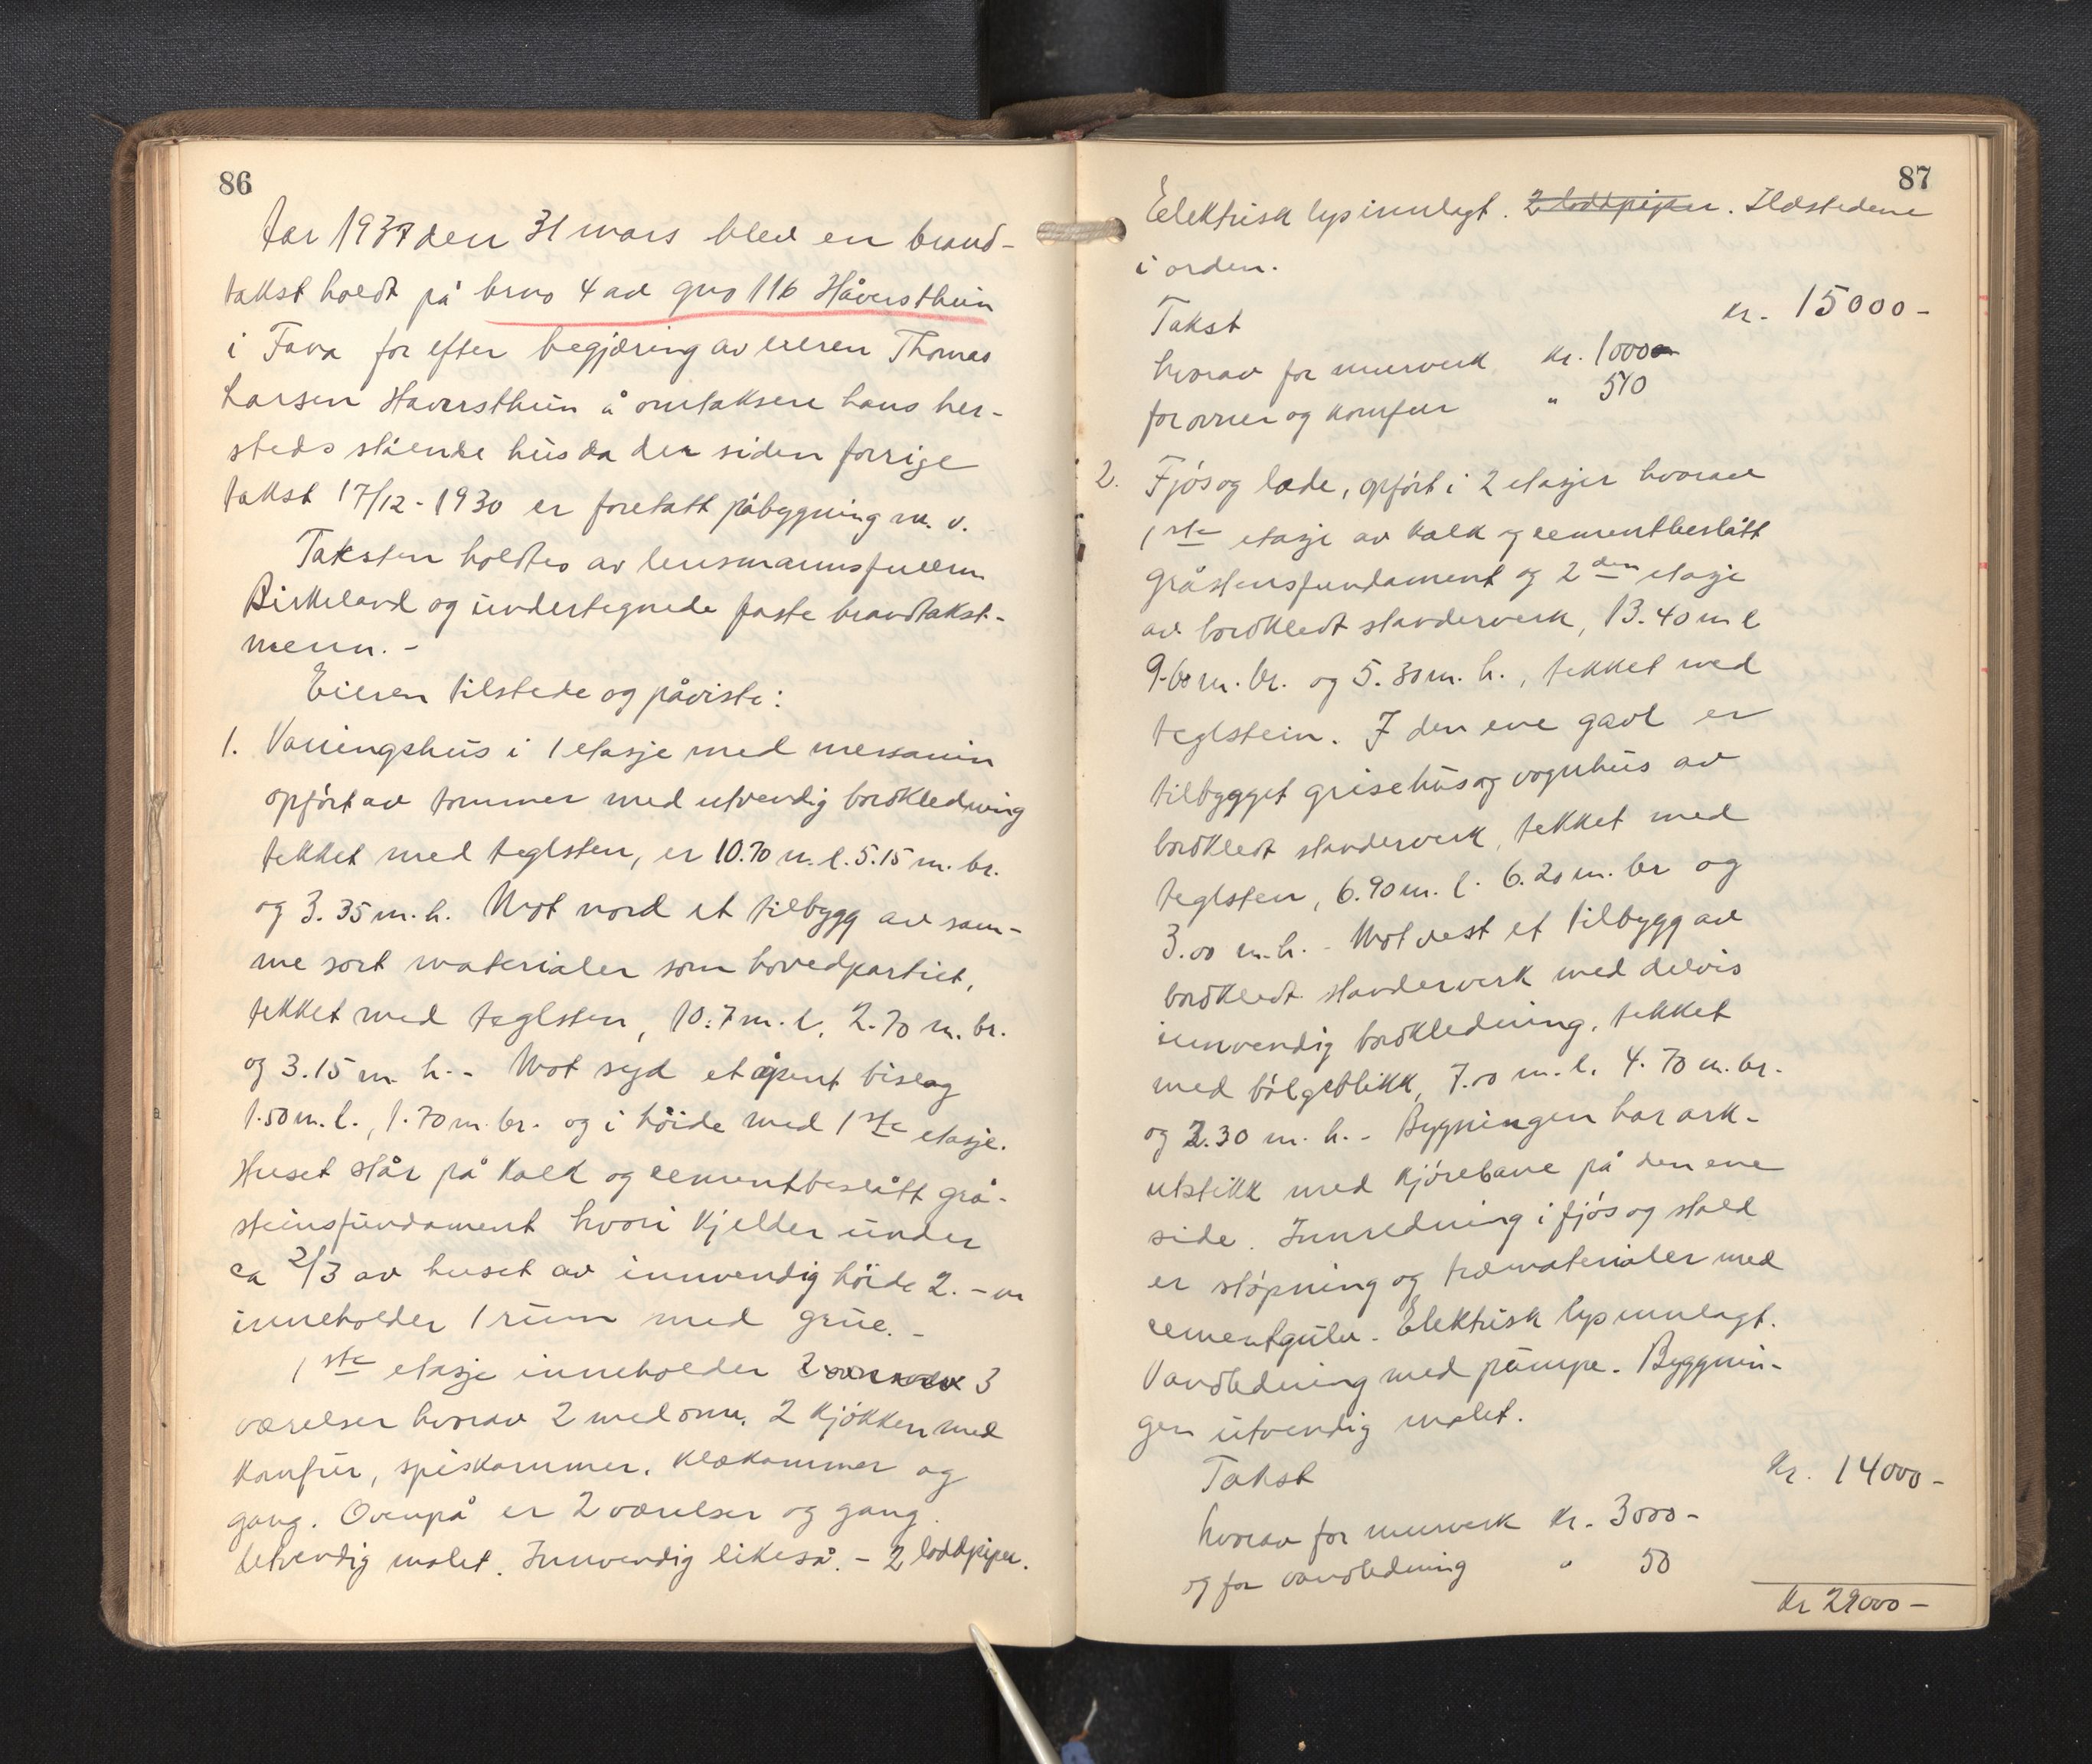 86
År 1937 den 31 mars blev en brand-
takst holdt på brno 4 av gno 116 Håversthun
i Fana for efter begjæring av eieren Thomas
Larsen Haversthun å omtaksere hans her-
steds stående hus da der siden forrige
takst 17/12-1930 er foretatt påbygning m.v.
Taksten holdtes av lensmannsfullm.
Birkeland og undertegnede faste brandtakst-
menn.-
Eieren tilstede og påviste:
1. Vaaningshus i 1 etasje med messanin
opført av tømmer med utvendig bordkledning
tekket med teglsten, er 10.70 m.l. 5.15 m. br.
og 3.35 m.h. Mot nord et tilbygg av sam-
me sort materialer som hovedpartiet,
tekket med teglsten, 10.7 m.l. 2.70 m. br.
og 3.15 m. h.- Mot syd et åpent bislag
1.50 m.l., 1.70 m. br. og i høide med 1ste etasje.
Huset står på kalk og cementbeslått grå-
steinsfundament hvori kjelder under
ca 2/3 av huset av innvendig höide 2.- m
inneholder 1 rum med grue.-
1ste etasje inneholder 2 3
værelser hvorav 2 med ovn, 2 kjøkken med
komfur, spiskammer, klækammer og
gang. Ovenpå er 2 værelser og gang.
Utvendig malet. Innvendig likeså.- 2 loddpiper.
87
Elektrisk lys innlagt. 2 loddpiper. Ildstedene
i orden.
Takst kr. 15000-
hvorav for murverk kr. 1000
for ovner og komfur " 510
2. Fjøs og løde, opført i 2 etasjer hvorav
1ste etasje av kalk og cementbeslått
gråstensfundament og 2den etasje
av bordkledt stenderverk, 13.40 m l
9.60 m. br. og 5.30 m. h., tekket med
teglstein. I den ene gavl er
tilbygget grisehus og vognhus av
bordkledt stenderverk, tekket med
teglsten, 6.90 m. l. 6.20 m. br og
3.00 m.h.- Mot vest et tilbygg av
bordkledt stenderverk med delvis
innvendig bordkledning, tekket
med bølgeblikk, 7.00 m.l. 4.70 m. br.
og 2.30 m. h.- Bygningen har ark-
utstikk med kjørebane på den ene
side. Innredning i fjøs og stald
er støpning og træmaterialer med
cementgulv. Elektrisk lys innlagt.
Vandledning med pumpe. Bygnin-
gen utvendig malet.
Takst kr. 14000-
hvorav for murverk kr. 3000-
og for vandledning " 50
kr 29000-